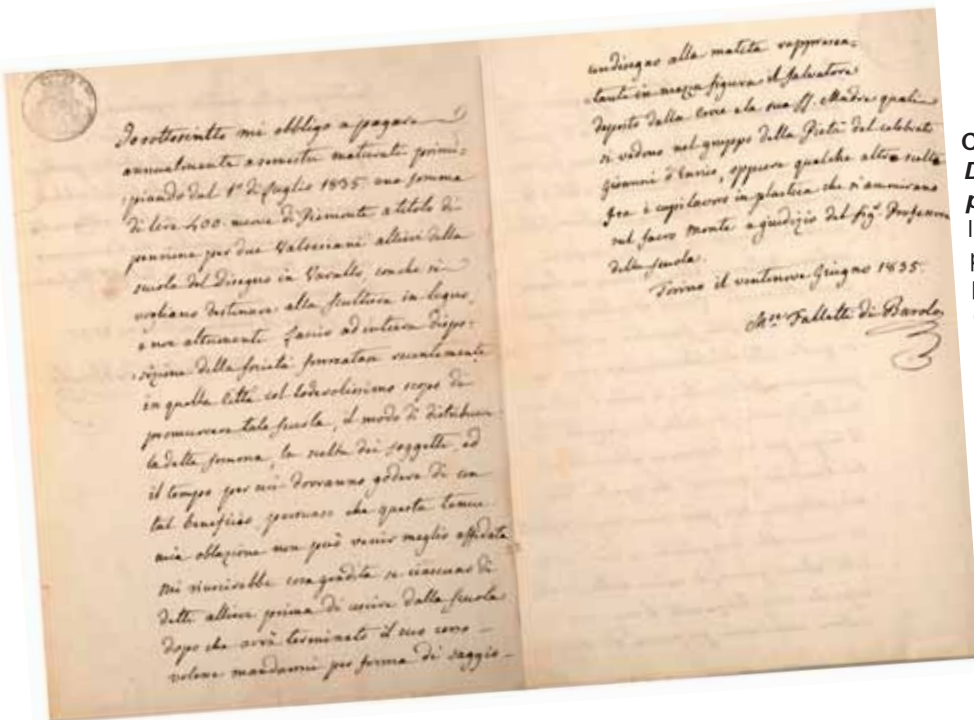 Io sottoscritto mi obbligo a pagare
annualmente a semestri maturati princi=
=piando dal 1º di Luglio 1835 una somma
di lire 400 nuove di Piemonte a titolo di
pensione per due Valsesiani allievi della
scuola del Disegno in Varallo, che si
vogliano destinare alla scultura in legno,
e non altrimenti. Lascio ad intiera dispo=
=sizione della società formatasi recentemente
in quella Città col lodevolissimo scopo di
promuovere tale scuola, il modo di distribuire
la detta somma, la scelta dei soggetti, ed
il tempo per cui dovranno godere di con
tal beneficio, persuaso che questa tenue
mia oblazione non può venir meglio affidata
Mi riuscirebbe cosa gradita se ciascuno di
detti allievi prima di uscire dalla scuola
dopo che avrà terminato il suo corso
volesse mandarmi per forma di saggio
un disegno alla matita rappresen=
=tante in mezza figura il Salvatore
deposto dalla croce e la sua SS. Madre quali
si vedono nel gruppo della Pietà del celebrato
Giovanni d'Enrico, oppure qualche altra scelta
fra i capi lavoro in plastica che s'ammirano
sul sacro Monte a giudizio del Sigr. Professore
della scuola.
Torino il ventinove Giugno 1835.
Falletti di Barolo